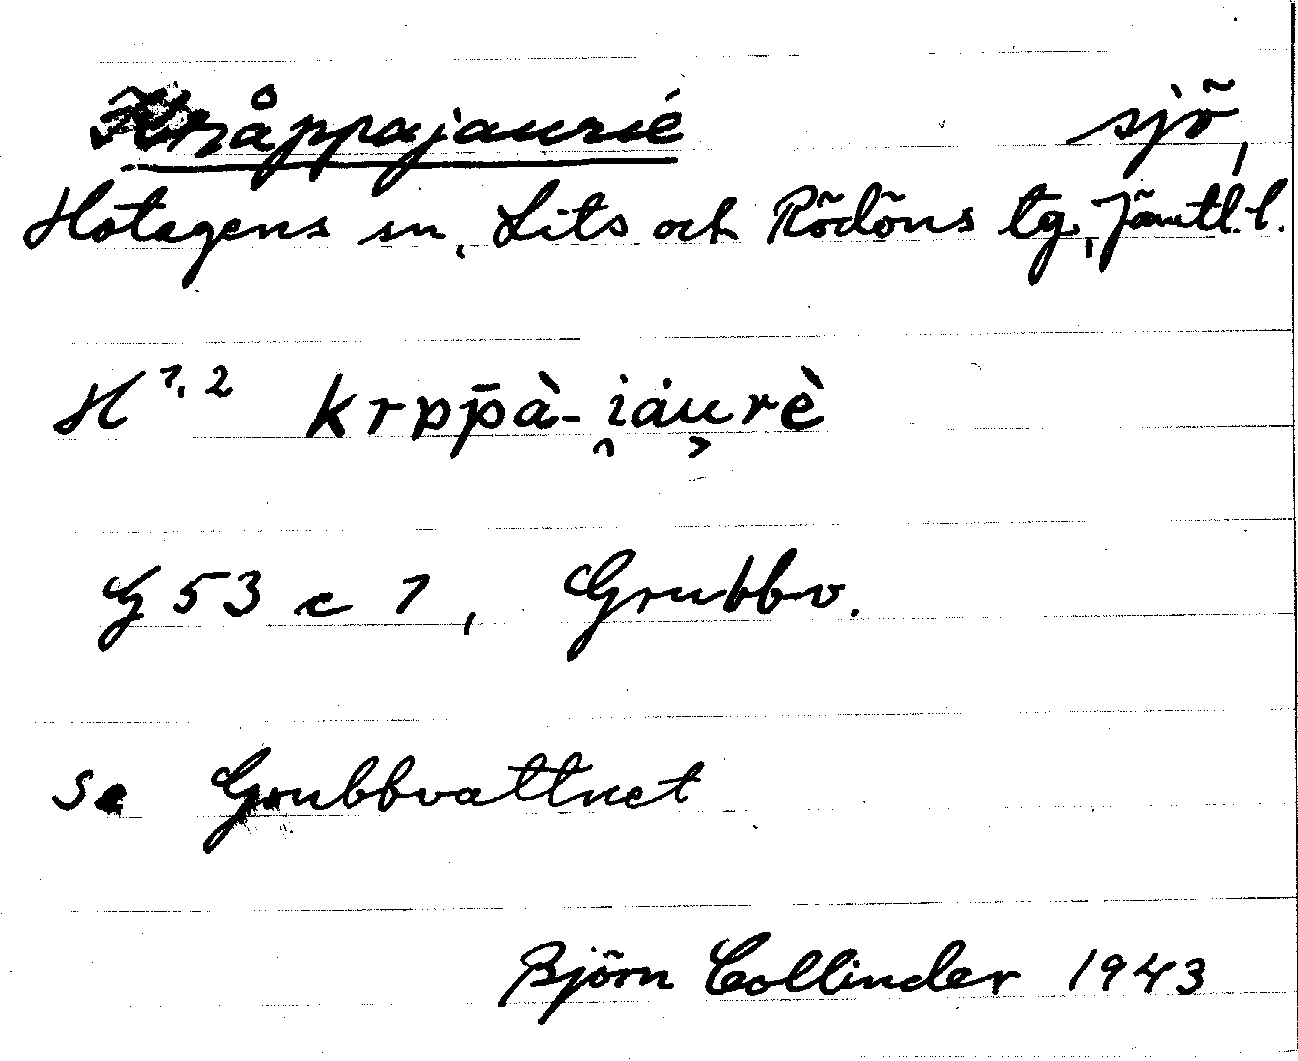 Kråppajaurie sjö,
Hotagens sn, Lits och Rödöns tg, Jämtl. l.
H 1, 2 krpp̄à-i̯áurè
G 53 c 1, Grubbv.
Se Grubbvattnet
Björn Collinder 1943